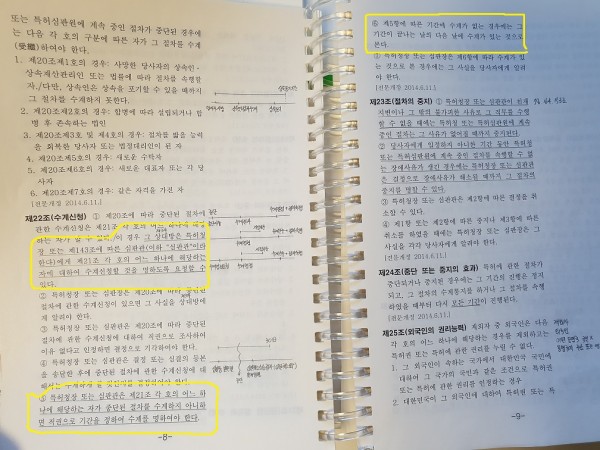 또는 특허심판원에 계속 중인 절차가 중단된 경우에
는 다음 각 호의 구분에 따른 자가 그 절차를 수계
(受繼)하여야 한다.
1. 제20조제1호의 경우: 사망한 당사자의 상속인·
상속재산관리인 또는 법률에 따라 절차를 속행할
자./다만, 상속인은 상속을 포기할 수 있을 때까지
그 절차를 수계하지 못한다.
2. 제20조제2호의 경우: 합병에 따라 설립되거나 합
병 후 존속하는 법인
3. 제20조제3호 및 제4호의 경우: 절차를 밟을 능력
을 회복한 당사자 또는 법정대리인이 된 자
4. 제20조제5호의 경우: 새로운 수탁자
5. 제20조제6호의 경우: 새로운 대표자 또는 각 당
사자
6. 제20조제7호의 경우: 같은 자격을 가진 자
[전문개정 2014.6.11.]
제22조(수계신청) ① 제20조에 따라 중단된 절차에
관한 수계신청은 제21조 각 호의 어느 하나에 해당
하는 자가 할 수 있다. 이 경우 그 상대방은 특허청
장 또는 제143조에 따른 심판관(이하 "심판관"이라
한다)에게 제21조 각 호의 어느 하나에 해당하는
자에 대하여 수계신청할 것을 명하도록 요청할 수
있다.
② 특허청장 또는 심판장은 제20조에 따라 중단된
절차에 관한 수계신청이 있으면 그 사실을 상대방에
게 알려야 한다.
③ 특허청장 또는 심판관은 제20조에 따라 중단된
절차에 관한 수계신청에 대하여 직권으로 조사하여
이유 없다고 인정하면 결정으로 기각하여야 한다.
④ 특허청장 또는 심판관은 결정 또는 심결의 등본
을 송달한 후에 중단된 절차에 관한 수계신청에 대
해서는 수계하게 할 것인지를 결정하여야 한다.
⑤ 특허청장 또는 심판관은 제21조 각 호의 어느 하
나에 해당하는 자가 중단된 절차를 수계하지 아니하
면 직권으로 기간을 정하여 수계를 명하여야 한다.
-8-
⑥ 제5항에 따른 기간에 수계가 없는 경우에는 그
기간이 끝나는 날의 다음 날에 수계가 있는 것으로
본다.
⑦ 특허청장 또는 심판장은 제6항에 따라 수계가 있
는 것으로 본 경우에는 그 사실을 당사자에게 알려
야 한다.
[전문개정 2014.6.11.]
제23조(절차의 중지) ① 특허청장 또는 심판관이 천재
지변이나 그 밖의 불가피한 사유로 그 직무를 수행
할 수 없을 때에는 특허청 또는 특허심판원에 계속
중인 절차는 그 사유가 없어질 때까지 중지된다.
② 당사자에게 일정하지 아니한 기간 동안 특허청
또는 특허심판원에 계속 중인 절차를 속행할 수 없
는 장애사유가 생긴 경우에는 특허청장 또는 심판관
은 결정으로 장애사유가 해소될 때까지 그 절차의
중지를 명할 수 있다.
③ 특허청장 또는 심판관은 제2항에 따른 결정을 취
소할 수 있다.
④ 제1항 또는 제2항에 따른 중지나 제3항에 따른
취소를 하였을 때에는 특허청장 또는 심판장은 그
사실을 각각 당사자에게 알려야 한다.
[전문개정 2014.6.11.]
제24조(중단 또는 중지의 효과) 특허에 관한 절차가
중단되거나 중지된 경우에는 그 기간의 진행은 정지
되고, 그 절차의 수계통지를 하거나 그 절차를 속행
하였을 때부터 다시 모든 기간이 진행된다.
[전문개정 2014.6.11.]
제25조(외국인의 권리능력) 재외자 중 외국인은 다음
각 호의 어느 하나에 해당하는 경우를 제외하고는
특허권 또는 특허에 관한 권리를 누릴 수 없다.
1. 그 외국인이 속하는 국가에서 대한민국 국민에
대하여 그 국가의 국민과 같은 조건으로 특허권
또는 특허에 관한 권리를 인정하는 경우
2. 대한민국이 그 외국인에 대하여 특허권 또는 특
-9-